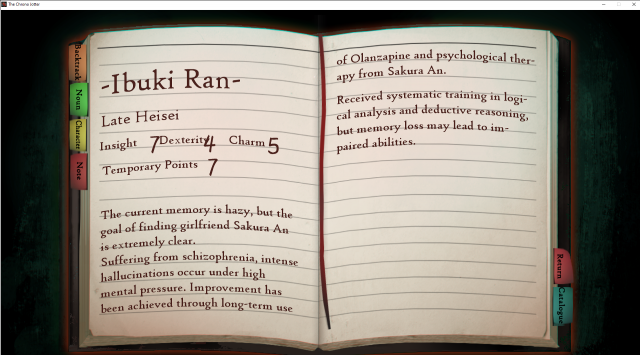 The Chrono Jotter
Backtrack
Noun
Character
Note
-Ibuki Ran-
Late Heisei
Insight 7 Dexterity 4 Charm 5
Temporary Points 7
The current memory is hazy, but the
goal of finding girlfriend Sakura An
is extremely clear.
Suffering from schizophrenia, intense
hallucinations occur under high
mental pressure. Improvement has
been achieved through long-term use
of Olanzapine and psychological ther-
apy from Sakura An.
Received systematic training in logi-
cal analysis and deductive reasoning,
but memory loss may lead to im-
paired abilities.
Return
Catalogue